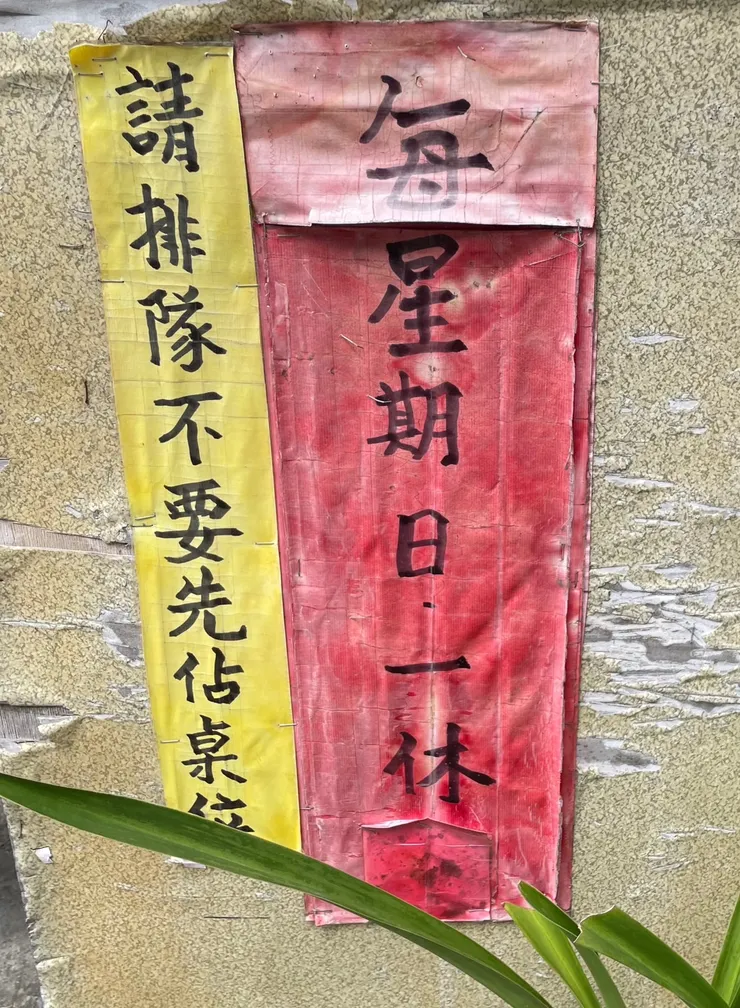 每星期日.一休
請排隊不要先佔桌位